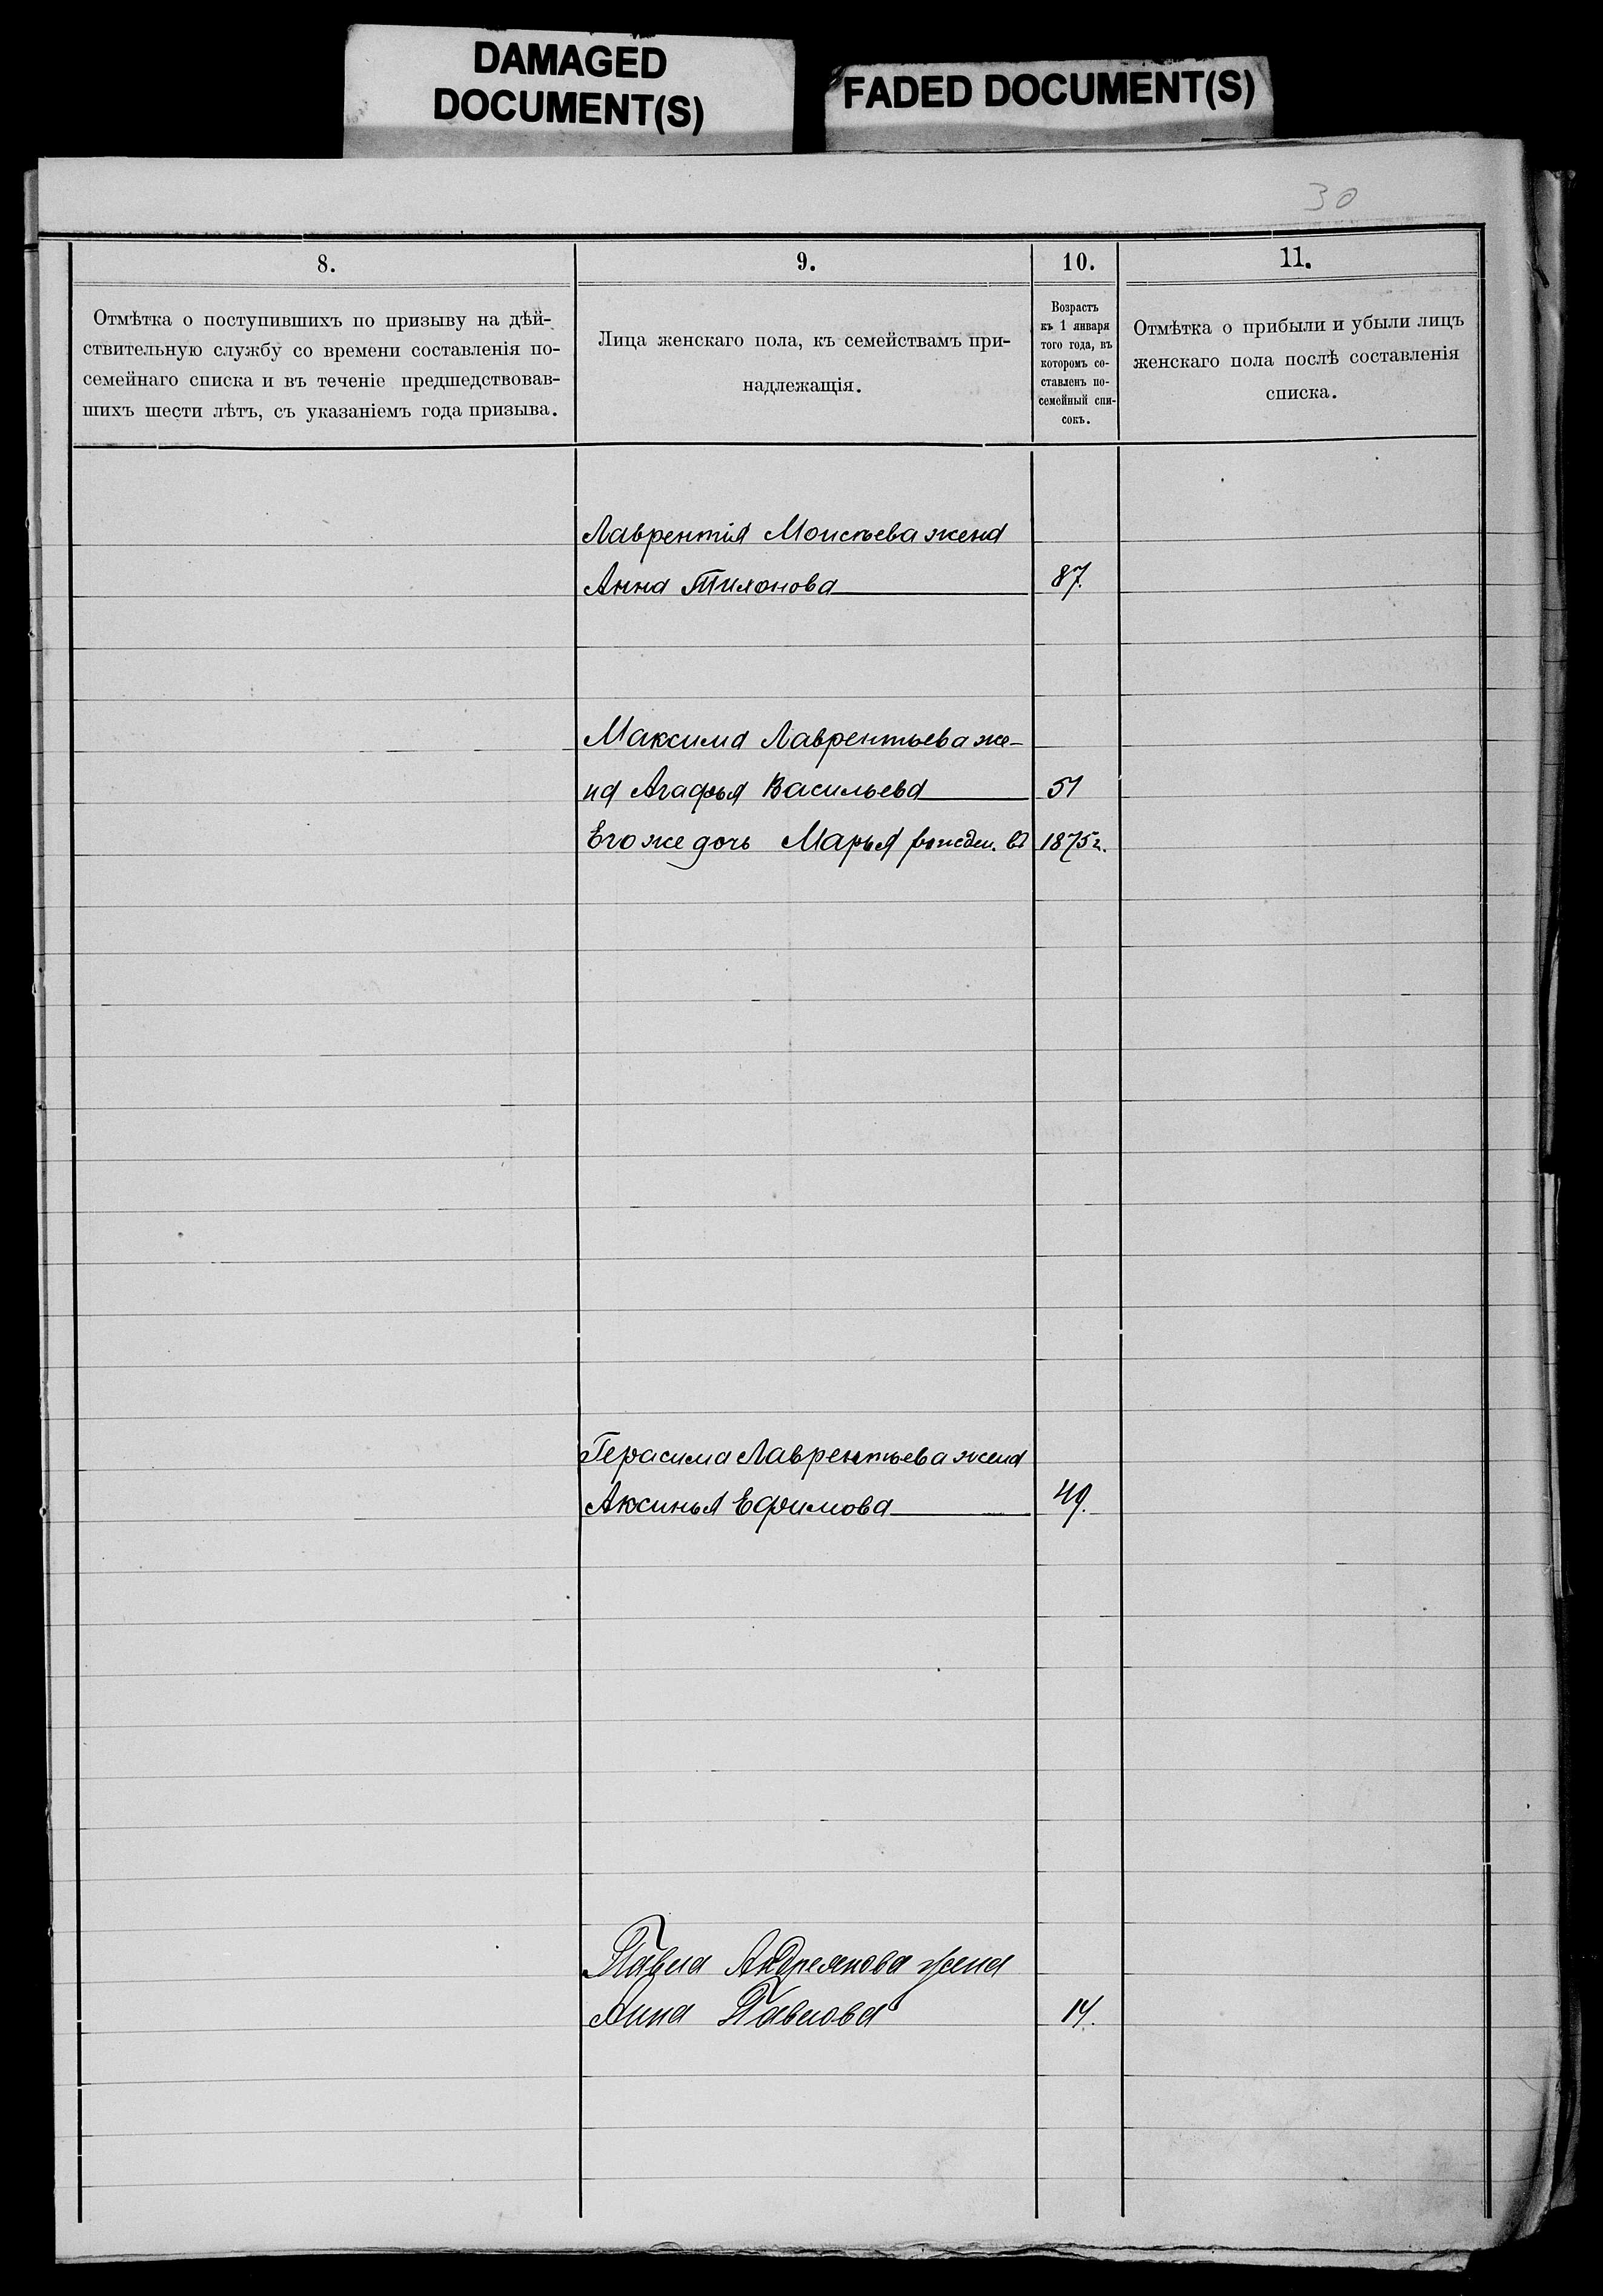 DAMAGED
DOCUMENT(S)
FADED DOCUMENT(S)
30
8.
9.
10.
11.
Отмѣтка о поступившихъ по призыву на дѣй-
ствительную службу со времени составленія по-
семейнаго списка и въ теченіе предшедствовав-
шихъ шести лѣтъ, съ указаніемъ года призыва.
Лица женскаго пола, къ семействамъ при-
надлежащія.
Возрастъ
къ 1 января
того года, въ
которомъ со-
ставленъ по-
семейный спи-
сокъ.
Отмѣтка о прибыли и убыли лицъ
женскаго пола послѣ составленія
списка.
Лаврентія Моисѣева жена
Анна Тихонова 87.
Максима Лаврентьева же-
на Агафья Васильева 51
Его же дочь Марья рожден. въ 1875 г.
Герасима Лаврентьева жена
Аксинья Ефимова 49.
Павла Андреянова жена
Анна Павлова 14.